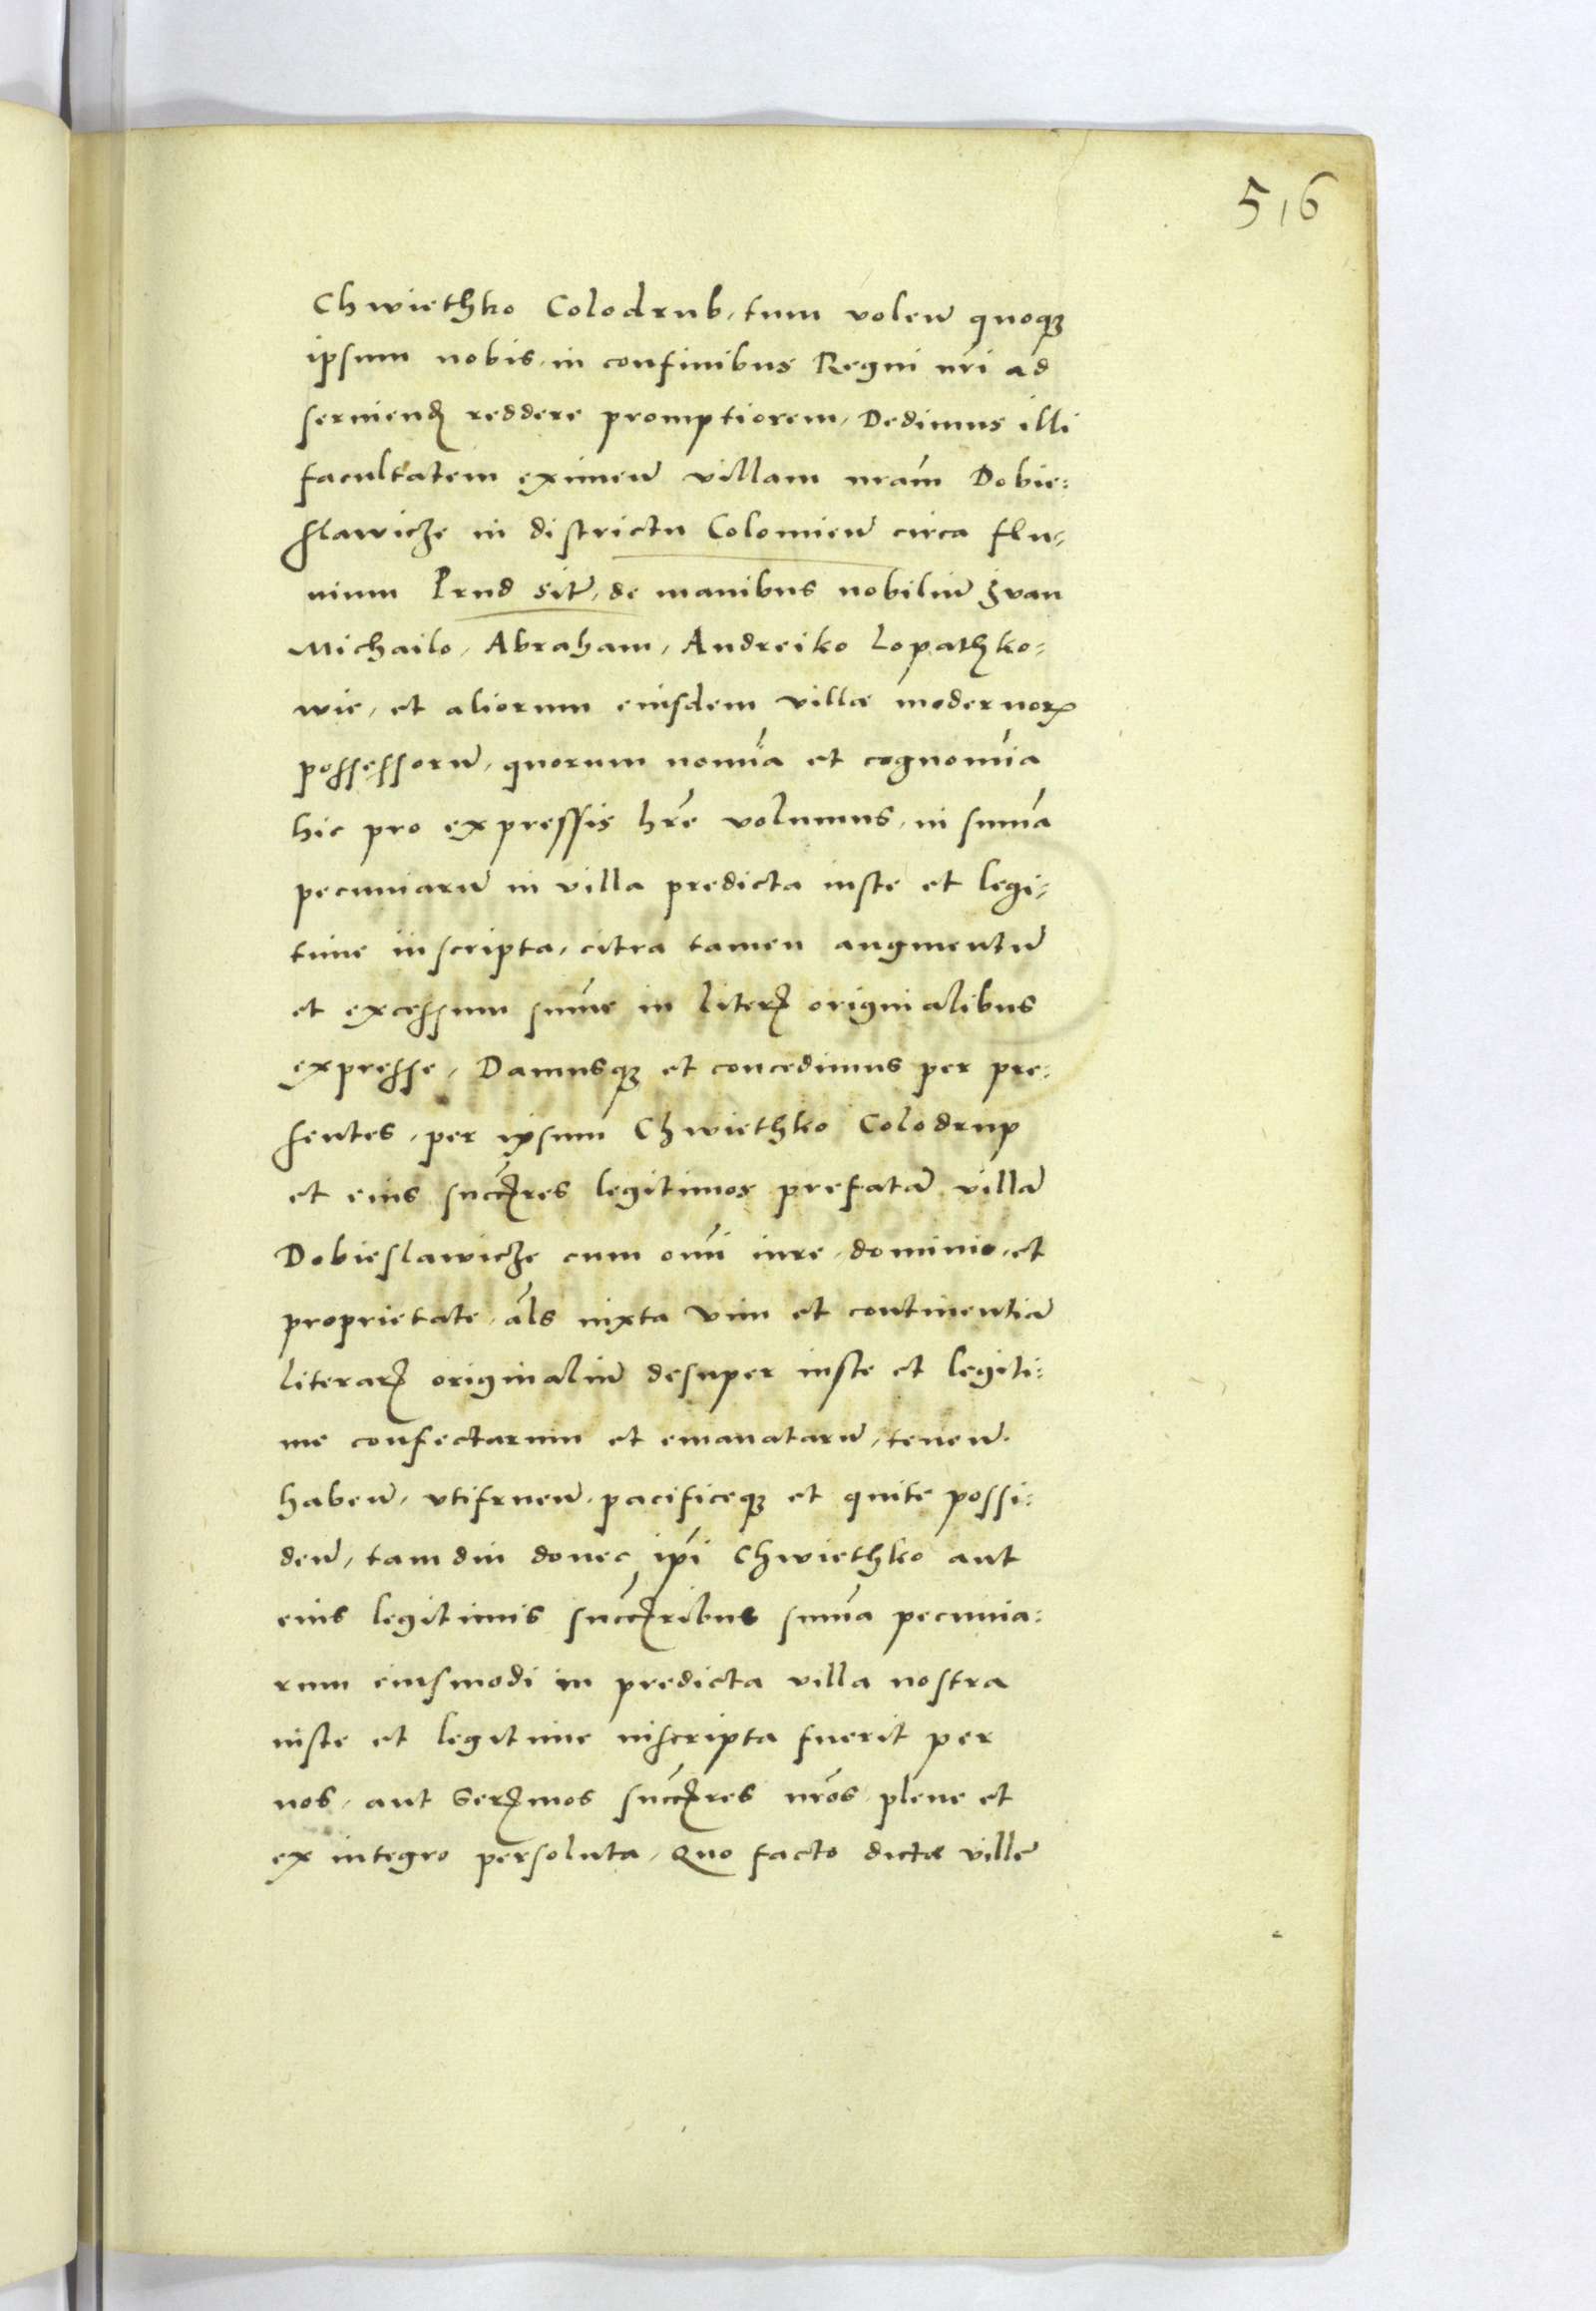 516
Chwiethko Colodrub, tum volen̄ quoqꝫ
ipsum nobis in confinibus Regni nr̄i ad
seruiend̄ reddere promptiorem, Dedimus illi
facultatem eximen̄ villam nrām Dobie:
slawicze in districtu Colomien̄ circa flu,
uium Prud sit̄, de manibus nobiliū Jvan
Michailo, Abraham, Andreiko Lopathko:
wie, et aliorum eiusdem villæ modernoꝝ
possessorū, quorum nomīa et cognomīa
hic pro expressis hr̄e volumus, in summ̄a
pecuniarū in villa predicta iuste et legi,
time inscripta, citra tamen augmentū
et excessum summ̄e in literꝭ originalibus
expresse, Damusqꝫ et concedimus per pre:
sentes, per ipsum Chwiethko Colodrup
et eius succ̄res legitimos prefatā villā
Dobieslawicze cum omī iure, dominio, et
proprietate, al̄s iuxta vim et continentiā
literaꝝ originaliū desuper iuste et legiti:
me confectarum et emanatarū, tenen̄.
haben̄, vtifruen̄, pacificeqꝫ et quite possi:
den̄, tam diu donec ip̄i Chwiethko aut
eius legitimis succ̄ribus summ̄a pecunia:
rum eiusmodi in predicta villa nostra
iuste et legitime inscripta fuerit per
nos, aut Serꝭmos succ̄res nrōs, plene et
ex integro persoluta, Quo facto dictæ villæ